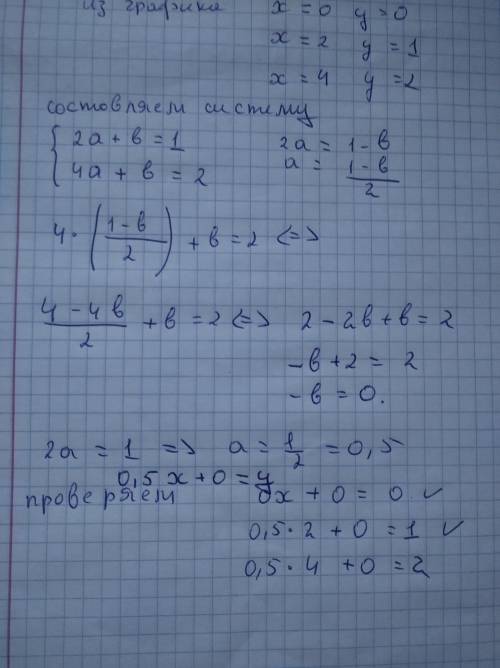 из графика x = 0 y = 0
x = 2 y = 1
x = 4 y = 2
состовляем систему
{ 2a + в = 1
4a + в = 2
2a = 1 - в
a = (1 - в)/2
4 · ((1 - в)/2) + в = 2 <=>
(4 - 4в)/2 + в = 2 <=> 2 - 2в + в = 2
-в + 2 = 2
-в = 0.
2a = 1 => a = 1/2 = 0,5
0,5x + 0 = y
проверяем 0x + 0 = 0 ✓
0,5 · 2 + 0 = 1 ✓
0,5 · 4 + 0 = 2